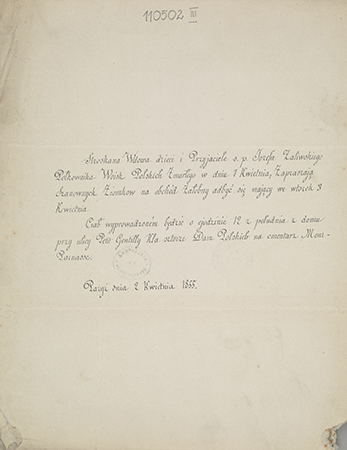 110502 III
Stroskana Wdowa dzieci i Przyjaciele s. p. Józefa Zaliwskiego
Półkownika Wojsk Polskich Zmarłego w dniu 1 Kwietnia, Zapraszają
szanownych Ziomków na obchód żałobny odbyć się mający we wtorek 3
Kwietnia
Ciał wyprowadzonem będzie o godzinie 12 z południa z domu
przy ulicy Petit Gentilly Kla sztorze Dam Polskich na cmentarz Mont-
Parnasse.
Paryż dnia 2 Kwietnia 1855.